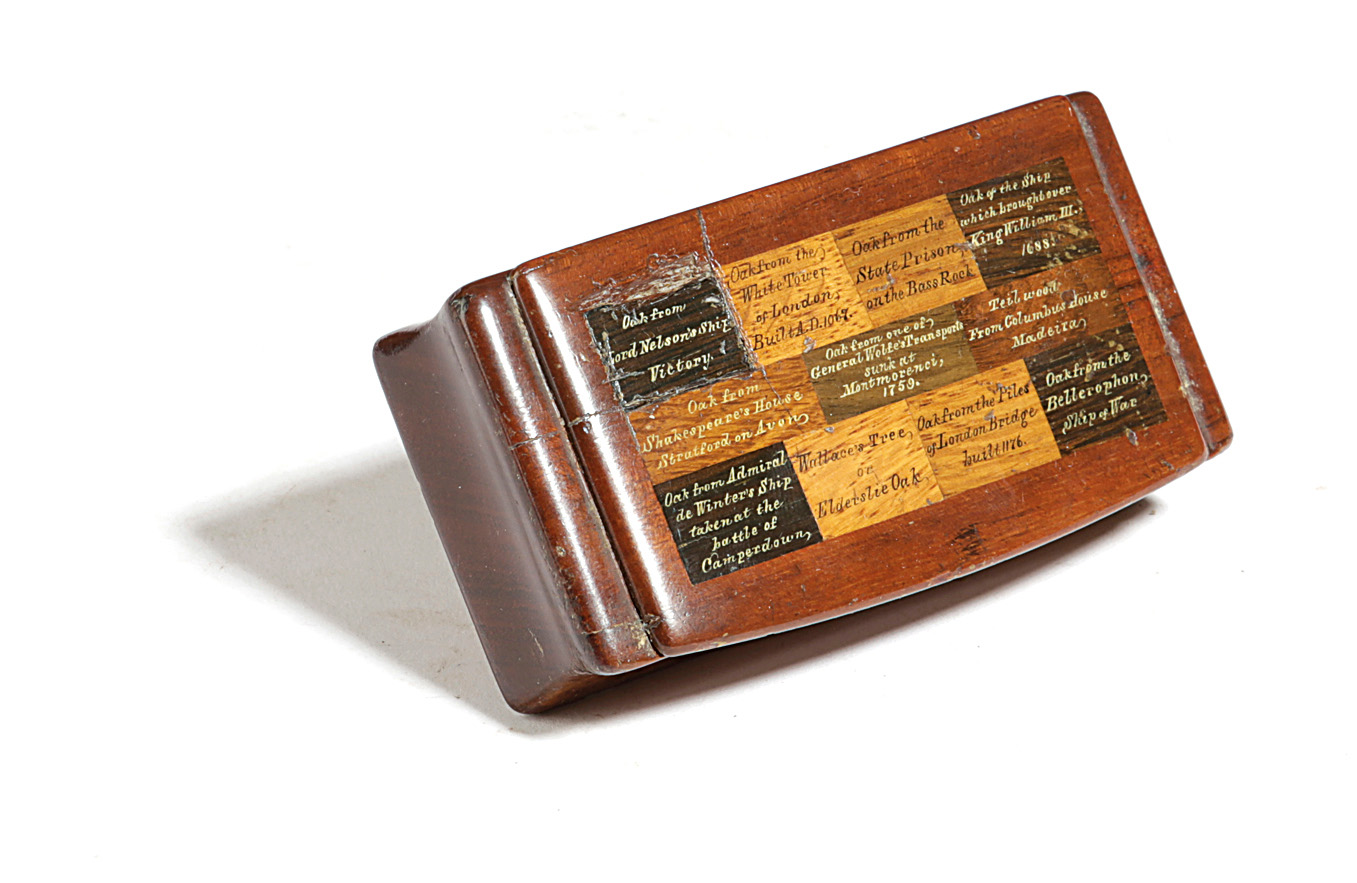 Oak from
Lord Nelson's Ship
Victory.
Oak from the
White Tower
of London,
Built A.D. 1067.
Oak from the
State Prison
on the Bass Rock
Oak of the Ship
which brought over
King William III.
1688.
Oak from
Shakespeare's House
Stratford on Avon
Oak from one of
General Wolfe's Transports
sunk at
Montmorenci,
1759.
Teil wood
From Columbus House
Madeira
Oak from Admiral
de Winter's Ship
taken at the
battle of
Camperdown,
Wallace's Tree
or
Elderslie Oak,
Oak from the Piles
of London Bridge
built 1176.
Oak from the
Bellerophon
Ship of War